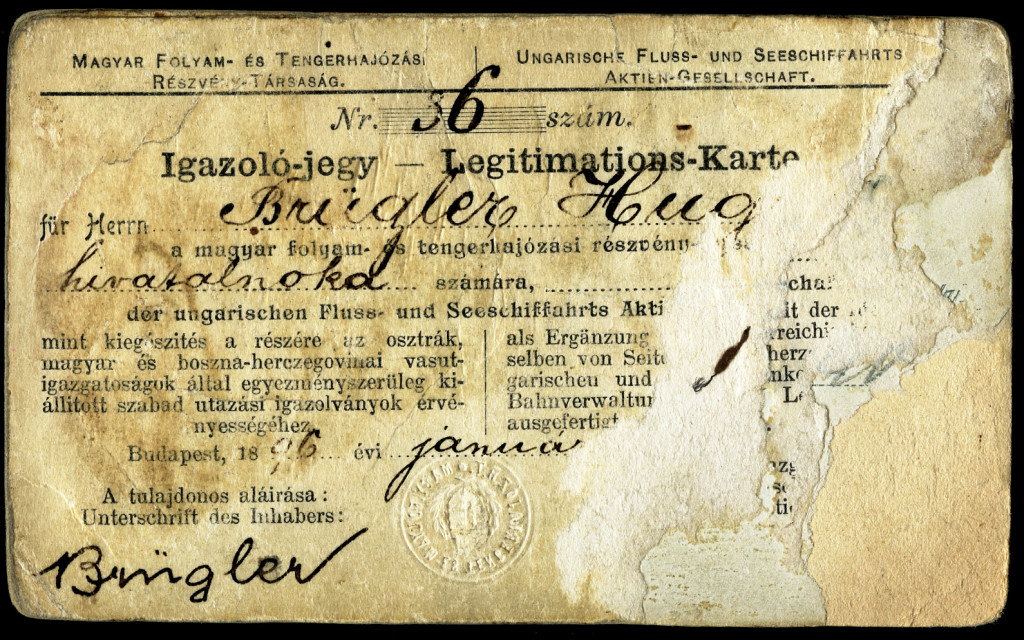 MAGYAR FOLYAM- ÉS TENGERHAJÓZÁSI
RÉSZVÉNY-TÁRSASÁG.
UNGARISCHE FLUSS- UND SEESCHIFFAHRTS
AKTIEN-GESELLSCHAFT.
Nr. 36 szám.
Igazoló-jegy — Legitimations-Karte
für Herrn Brügler Hug
a magyar folyam- és tengerhajózási részvény-
hivatalnoka számára,
der ungarischen Fluss- und Seeschiffahrts Akti
mint kiegészítés a részére az osztrák,
magyar és boszna-herczegovinai vasut-
igazgatóságok által egyezményszerüleg ki-
állitott szabad utazási igazolványok érvé-
nyességéhez
als Ergänzung
selben von Seite
garischen und
Bahnverwaltun
ausgefertigt
it der
Budapest, 1896 évi januá
A tulajdonos aláirása:
Unterschrift des Inhabers:
Brügler